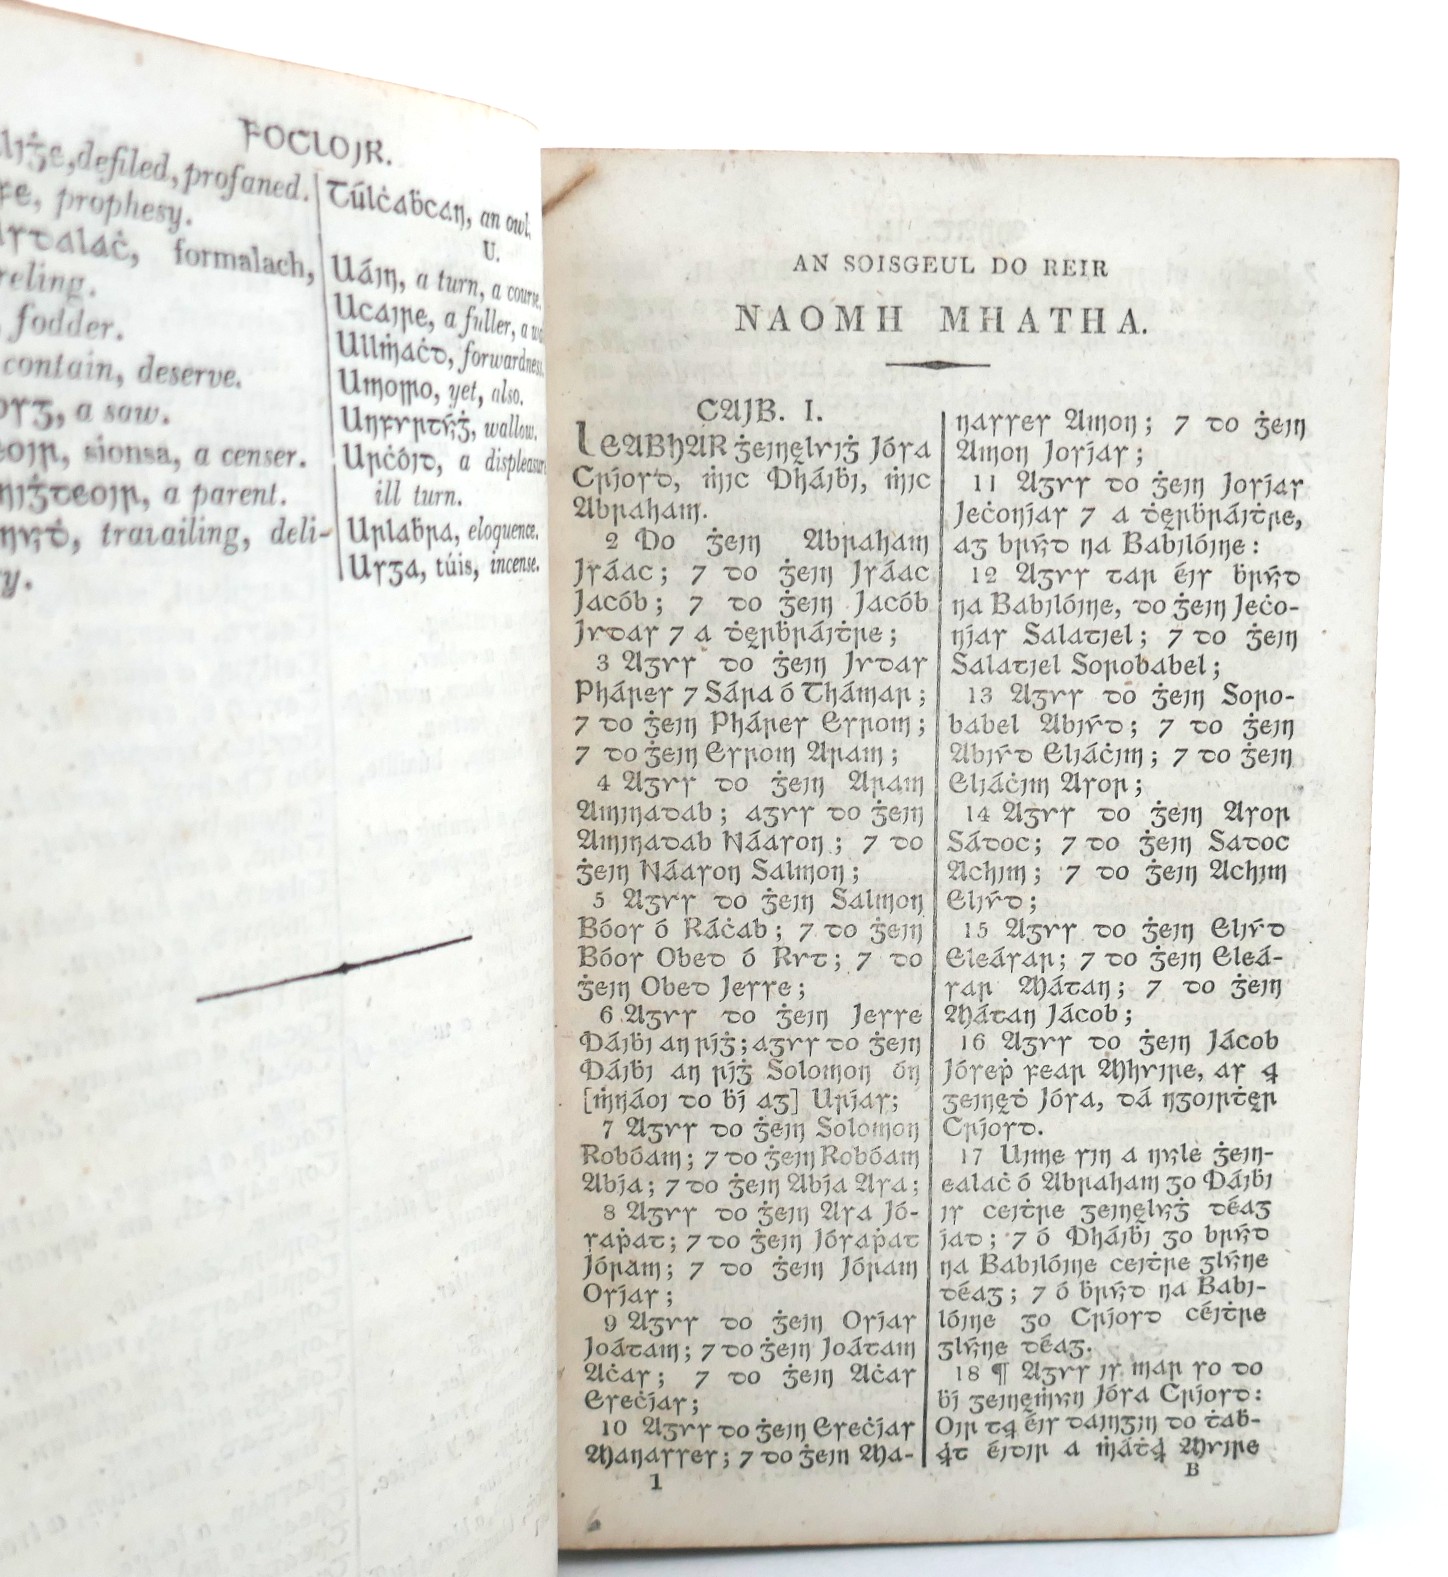 FOCLOIR.
defiled, profaned.
prophesy.
formalach,
fodder.
contain, deserve.
a saw.
sionsa, a censer.
a parent.
travailing, deli-
Túlċaḃcan, an owl.
U.
Uáin, a turn, a course.
Ucaire, a fuller, a
Ullṁaċd, forwardness.
Umorro, yet, also.
Unfuirtúiġ, wallow.
Urċóid, a displeasure
ill turn.
Urlaḃra, eloquence.
Usga, túis, incense.
AN SOISGEUL DO REIR
NAOMH MHATHA.
CAIB. I.
LEABHAR ġeinealuiġ Iósa
Críosd, ṁic Dháiḃi, ṁic
Abraham.
2 Do ġein Abraham
Isáac; ⁊ do ġein Isáac
Iacób; ⁊ do ġein Iacób
Iudas ⁊ a ḋearḃráiṫre;
3 Agus do ġein Iudas
Pháres ⁊ Sára ó Thámar;
⁊ do ġein Pháres Esrom;
⁊ do ġein Esrom Aram;
4 Agus do ġein Aram
Aminadab; agus do ġein
Aminadab Náason; ⁊ do
ġein Náason Salmon;
5 Agus do ġein Salmon
Bóos ó Ráċab; ⁊ do ġein
Bóos Obed ó Rut; ⁊ do
ġein Obed Iesse;
6 Agus do ġein Iesse
Dáiḃi an ríġ; agus do ġein
Dáiḃi an ríġ Solomon ón
[ṁnáoi do ḃí ag] Urías;
7 Agus do ġein Solomon
Robóam; ⁊ do ġein Robóam
Abía; ⁊ do ġein Abía Asa;
8 Agus do ġein Asa Ió-
saṗat; ⁊ do ġein Iósaṗat
Ióram; ⁊ do ġein Ióram
Osías;
9 Agus do ġein Osías
Ioátam; ⁊ do ġein Ioátam
Aċas; ⁊ do ġein Aċas
Eseċías;
10 Agus do ġein Eseċías
Manasses; ⁊ do ġein Ma-
1
nasses Amon; ⁊ do ġein
Amon Iosías;
11 Agus do ġein Iosías
Ieċonías ⁊ a ḋearḃráiṫre,
ag brúid na Babilóine:
12 Agus tar éis ḃrúid
na Babilóine, do ġein Ieċo-
nías Salatiel; ⁊ do ġein
Salatiel Sorobabel;
13 Agus do ġein Soro-
babel Abiúd; ⁊ do ġein
Abiúd Eliáċim; ⁊ do ġein
Eliáċim Asor;
14 Agus do ġein Asor
Sádoc; ⁊ do ġein Sadoc
Achim; ⁊ do ġein Achim
Eliúd;
15 Agus do ġein Eliúd
Eleásar; ⁊ do ġein Eleá-
sar Mátan; ⁊ do ġein
Mátan Iácob;
16 Agus do ġein Iácob
Ióseṗ fear Mhuire, as ar
geineaḋ Iósa, dá ngoirṫear
Críosd.
17 Uime sin a nuile ġein-
ealaċ ó Abraham go Dáiḃi
is ceiṫre geinealuiġ déag
iad; ⁊ ó Dháiḃi go brúid
na Babilóine ceiṫre glúine
déag; ⁊ ó ḃrúid na Babi-
lóine go Críosd céiṫre
glúine déag.
18 ¶ Agus is mar so do
ḃí geineaṁuin Iósa Críosd:
Oir tar éis daingin do ṫaḃ-
airt éidir a ṁáṫair Muire
B